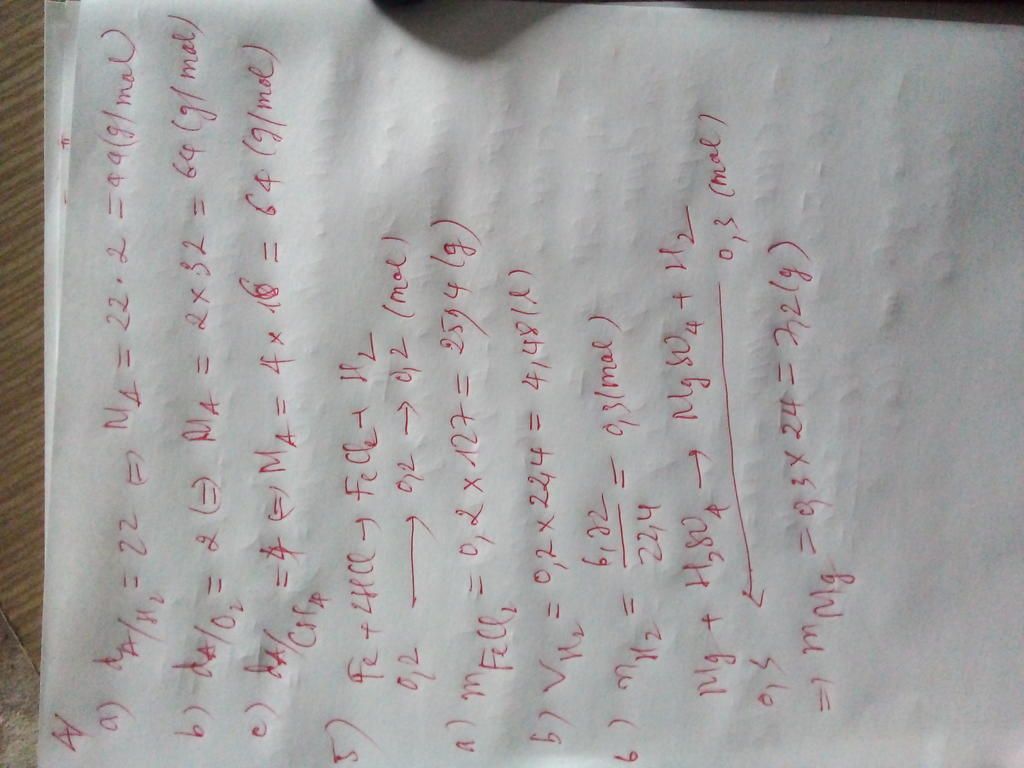 4/
a) d_A/H₂ = 22 ⇔ M_A = 22 . 2 = 44 (g/mol)
b) d_A/O₂ = 2 (⇔) M_A = 2 × 32 = 64 (g/mol)
c) d_A/CH₄ = 4 ⇔ M_A = 4 × 16 = 64 (g/mol)
5)
Fe + 2HCl → FeCl₂ + H₂
0,2 → 0,2 → 0,2 (mol)
a) m_FeCl₂ = 0,2 × 127 = 25,4 (g)
b) V_H₂ = 0,2 × 22,4 = 4,48 (l)
6) n_H₂ = 6,72/22,4 = 0,3 (mol)
Mg + H₂SO₄ → MgSO₄ + H₂
0,3 ← 0,3 (mol)
⇒ m_Mg = 0,3 × 24 = 7,2 (g)